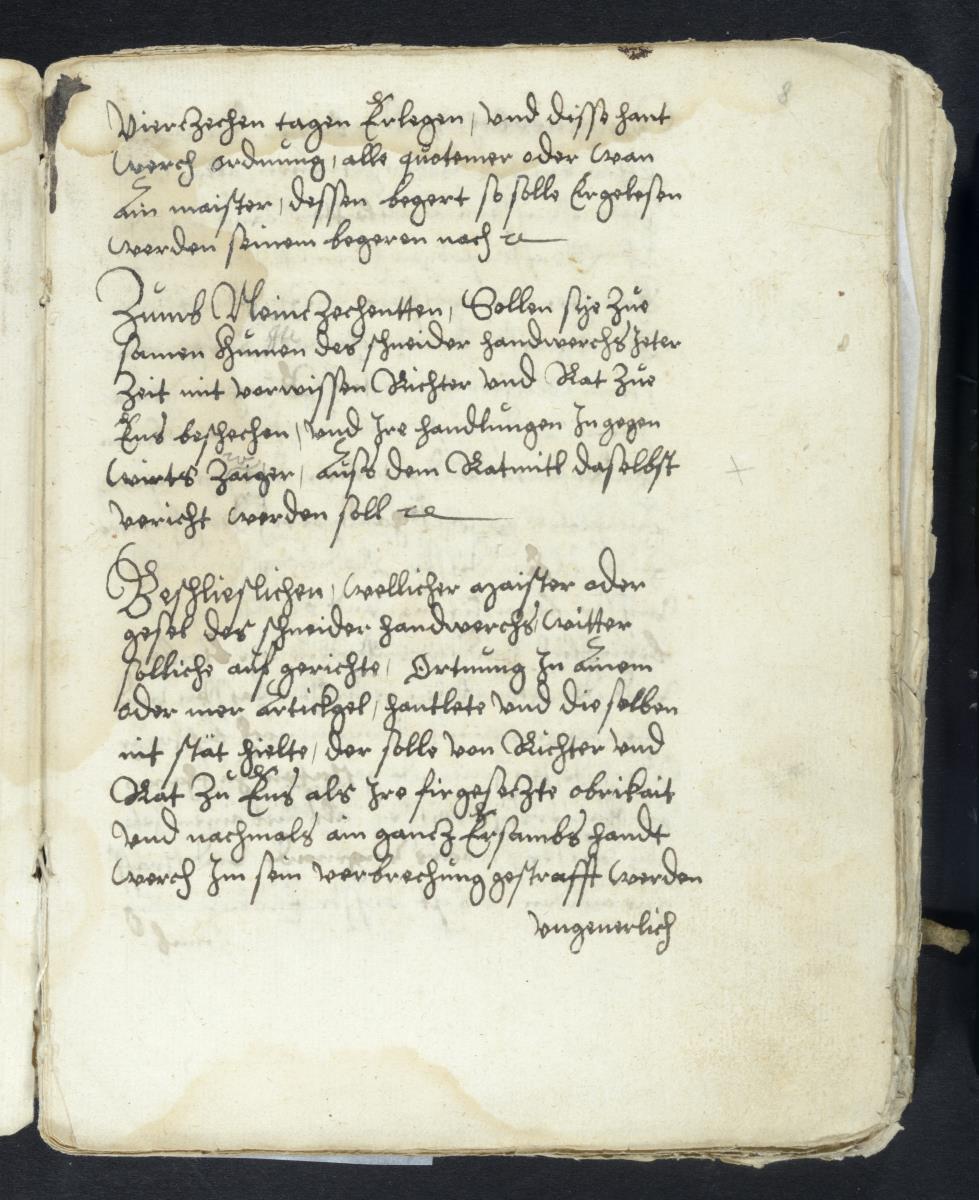 8
Vierczechen tagen Erlegen, vnd disse hant
werch ordnung, alle quotemer oder wan
Ain maister, dessen begert so solle Ergelesen
werden seinem begeren nach ꝛc
Zumb Neinczechentten, Sollen sÿe Zue
samen khumen des schneider handwerchs Jeter
Zeit mit vorwissen Richter vnd Rat Zue
Ens beschechen, vnd Jre handlungen In gegen
wirts Zaiger, Auss dem Ratmitl daselbst
vericht werden soll ꝛc
Beschlieslichen, wellicher maister oder
gesel des schneider handwerchs witter
solliche auf gerichte, Ortnung In Ainem
oder mer Artickgel, hantlete vnd dieselben
nit stät hielte, der solle von Richter vnd
Rat Zu Ens als Jre firgeseczte obrikait
vnd nachmals ain gancz Ersambs handt
werch Im sein verbrechung gestrafft werden
vngeuerlich